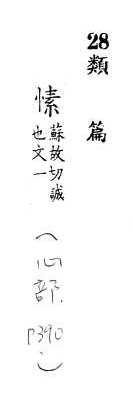 28
類篇
愫 蘇故切誠
也文一
(心部.
P390
)